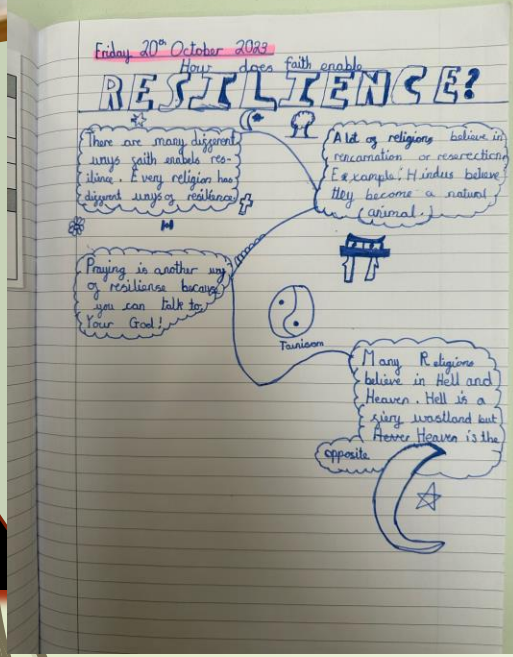 Friday 20th October 2023
How does faith enable
RESILIENCE?
There are many different
ways faith enabels res-
iline. Every religion has
different ways of resiliance
A lot of religions believe in
rencarnation or reserection
Example: Hindus believe
they become a natural
(animal.)
Praying is another way
of resilianse because
you can talk to
Your God!
Tainisom
Many Religions
believe in Hell and
Heaven. Hell is a
fiery wastland but
Heaven is the
opposite